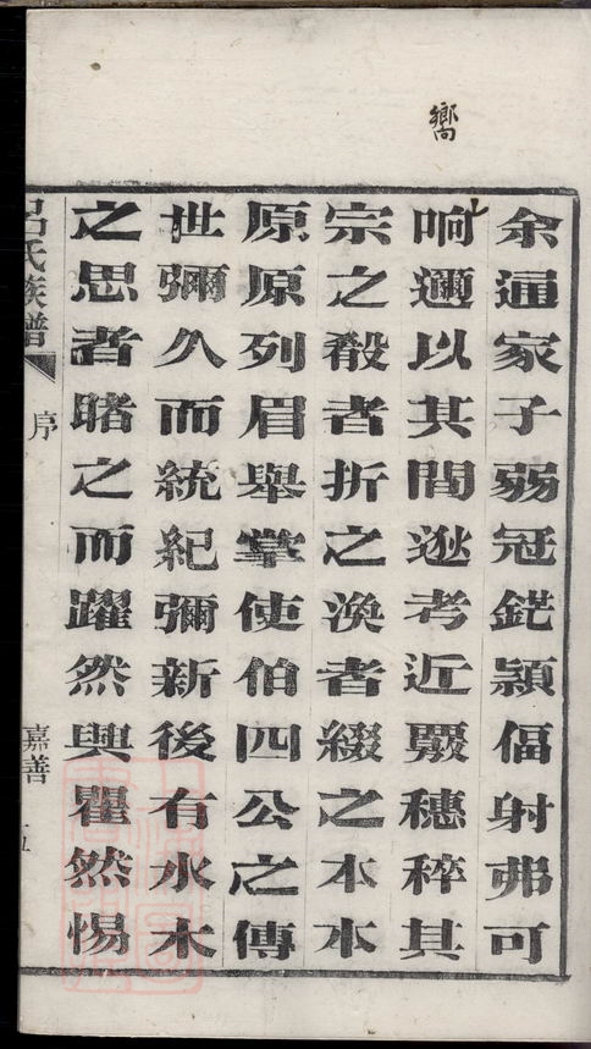 嚮
余通家子弱冠鋩穎偪射弗可
响邇以其間逖考近覈穗稡其
宗之殽者折之渙者綴之本本
原原列眉舉掌使伯四公之傳
世彌久而統紀彌新後有水木
之思者睹之而躍然興瞿然惕
呂氏族譜 序 嘉善 五